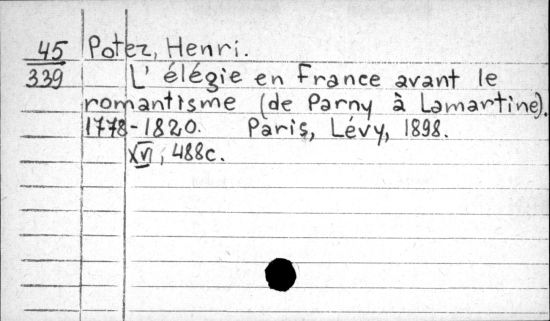 45 Potez, Henri.
339 L' élégie en France avant le
romantisme (de Parny à Lamartine).
1778-1820. Paris, Lévy, 1898.
XVI, 488c.